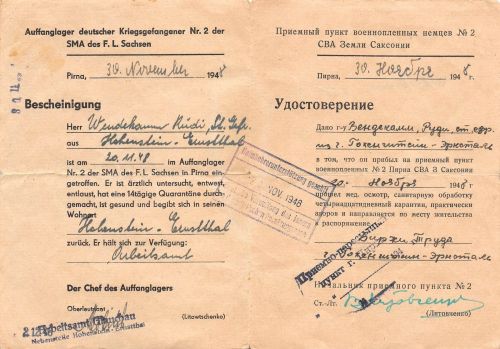 Auffanglager deutscher Kriegsgefangener Nr. 2 der
SMA des F. L. Sachsen
Pirna, 30. November 1948
Bescheinigung
Herr Wendekamm Rudi, St. Gefr.
aus Hohenstein-Ernstthal
ist am 20.11.48 im Auffanglager
Nr. 2 der SMA des F. L. Sachsen in Pirna ein-
getroffen. Er ist ärztlich untersucht, entwest,
entlaust, hat eine 14tägige Quarantäne durch-
gemacht, ist gesund und begibt sich in seinen
Wohnort
Hohenstein-Ernstthal
zurück. Er hält sich zur Verfügung:
Arbeitsamt
Der Chef des Auffanglagers
Oberleutnant (Litowtschenko)
Arbeitsamt Glauchau
Nebenstelle Hohenstein-Ernstthal
NOV. 1948
Приемный пункт военнопленных немцев № 2
СВА Земли Саксонии
Пирна, 30. Ноября 1948 г.
Удостоверение
Дано г-у Вендекамм, Руди, ст. ефр.
из г. Гогенштейн-Эрнсталь
в том, что он прибыл на приемный пункт
военнопленных № 2 Пирна СВА З Саксонии
20. Ноября 1948 г.
прошел мед. осмотр, санитарную обработку
четырнадцатидневный карантин, практически
здоров и направляется по месту жительства
в распоряжение:
Биржи Труда
Гогенштейн-Эрнсталь
Начальник приемного пункта № 2
Ст.-Лт. (Литовченко)